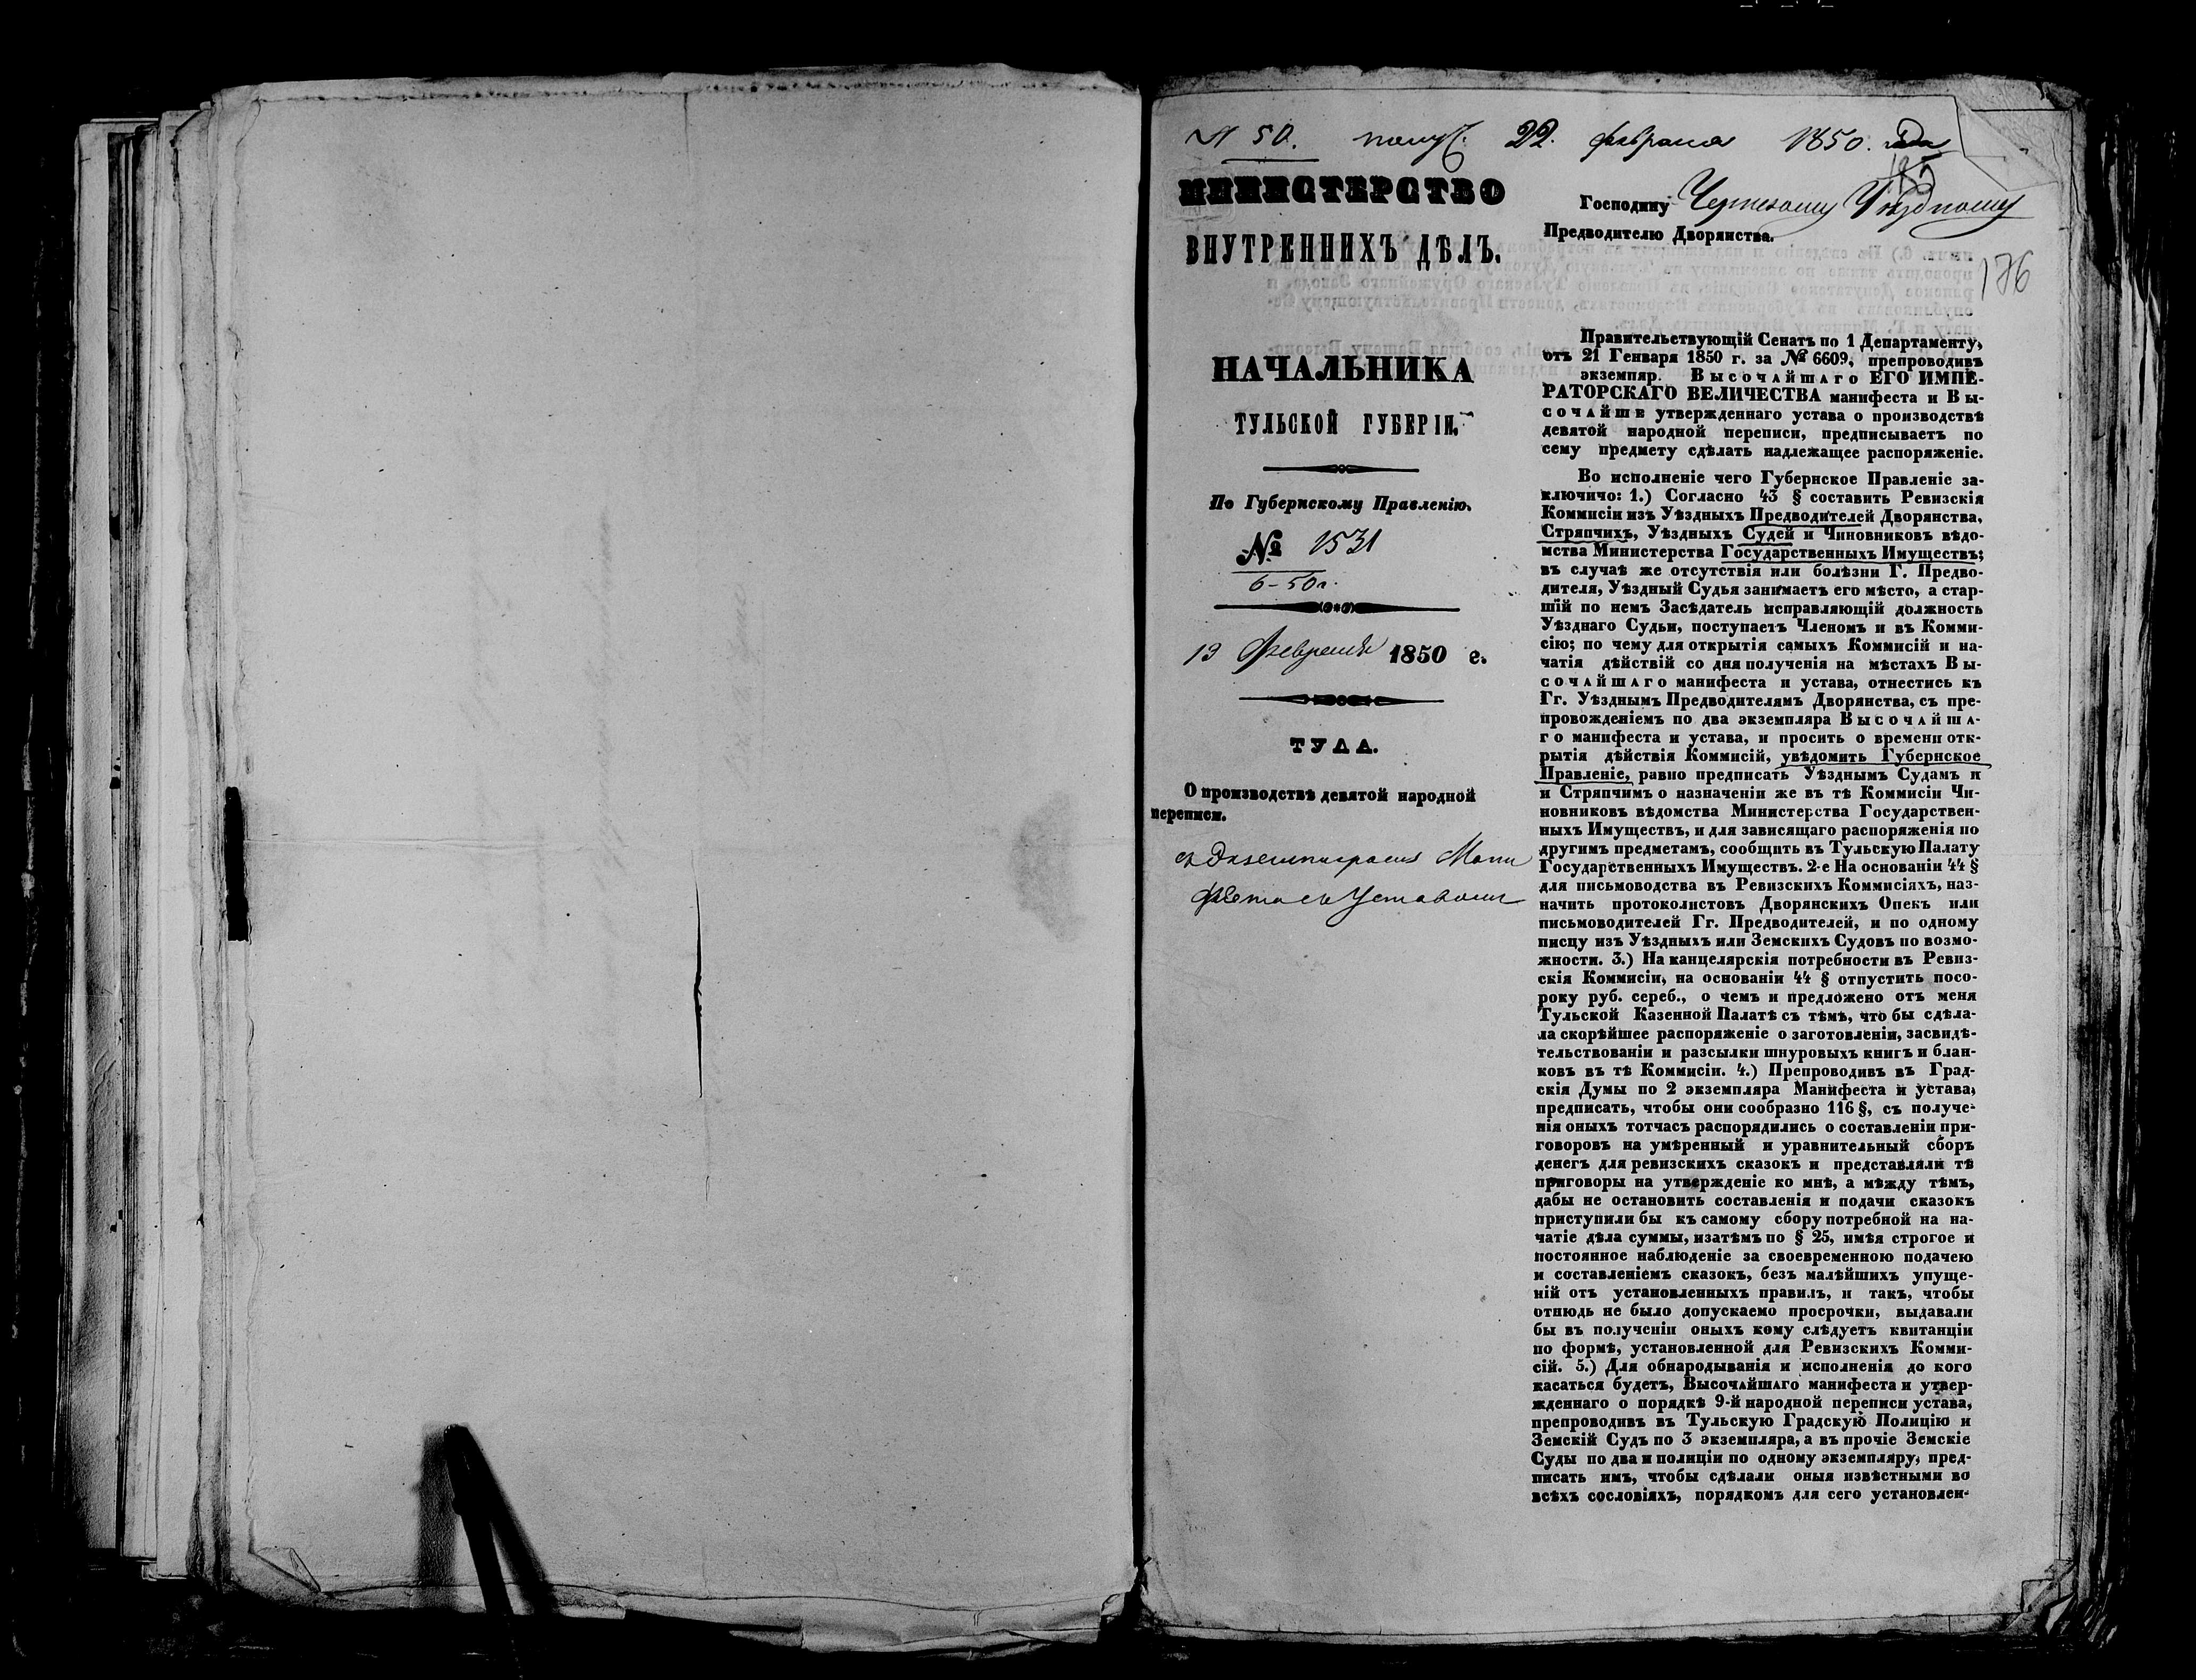 № 50. получ. 22. февраля 1850. года
МИНИСТЕРСТВО
ВНУТРЕННИХЪ ДѢЛЪ.
НАЧАЛЬНИКА
ТУЛЬСКОЙ ГУБЕРНІИ.
По Губернскому Правленію.
№ 1531
6-50 г.
19 Февраля 1850 г.
ТУЛА.
О производствѣ девятой народной
переписи.
съ Экземплярами Мани
феста съ Уставомъ
185
Господину Чернскому Уѣздному
Предводителю Дворянства.
176
Правительствующій Сенатъ по 1 Департаменту,
отъ 21 Генваря 1850 г. за № 6609, препроводивъ
экземпяр. Высочайшаго ЕГО ИМПЕ-
РАТОРСКАГО ВЕЛИЧЕСТВА манифеста и Вы-
сочайше утвержденнаго устава о производствѣ
девятой народной переписи, предписываетъ по
сему предмету сдѣлать надлежащее распоряженіе.
Во исполненіе чего Губернское Правленіе за-
ключичо: 1.) Согласно 43 § составить Ревизскія
Коммисіи изъ Уѣздныхъ Предводителей Дворянства,
Стряпчихъ, Уѣздныхъ Судей и Чиновниковъ вѣдо-
мства Министерства Государственныхъ Имуществъ;
въ случаѣ же отсутствія или болѣзни Г. Предво-
дителя, Уѣздный Судья занимаетъ его мѣсто, а стар-
шій по немъ Засѣдатель исправляющій должность
Уѣзднаго Судьи, поступаетъ Членомъ и въ Комми-
сію; по чему для открытія самыхъ Коммисій и на-
чатія дѣйствій со дня полученія на мѣстахъ Вы-
сочайшаго манифеста и устава, отнестись къ
Гг. Уѣзднымъ Предводителямъ Дворянства, съ пре-
провожденіемъ по два экземпляра Высочайша-
го манифеста и устава, и просить о времени отк-
рытія дѣйствія Коммисій, увѣдомить Губернское
Правленіе, равно предписать Уѣзднымъ Судамъ и
и Стряпчимъ о назначеніи же въ тѣ Коммисіи Чи-
новниковъ вѣдомства Министерства Государствен-
ныхъ Имуществъ, и для зависящаго распоряженія по
другимъ предметамъ, сообщить въ Тульскую Палату
Государственныхъ Имуществъ. 2-е На основаніи 44 §
для письмоводства въ Ревизскихъ Коммисіяхъ, наз-
начить протоколистовъ Дворянскихъ Опекъ или
письмоводителей Гг. Предводителей, и по одному
писцу изъ Уѣздныхъ или Земскихъ Судовъ по возмо-
жности. 3.) На канцелярскія потребности въ Ревиз-
скія Коммисіи, на основаніи 44 § отпустить посо-
року руб. сереб., о чемъ и предложено отъ меня
Тульской Казенной Палатѣ съ тѣмъ, что бы сдѣла-
ла скорѣйшее распоряженіе о заготовленіи, засвидѣ-
тельствованіи и разсылки шнуровыхъ книгъ и блан-
ковъ въ тѣ Коммисіи. 4.) Препроводивъ въ Град-
скія Думы по 2 экземпляра Манифеста и устава,
предписать, чтобы они сообразно 116 §, съ получе-
нія оныхъ тотчасъ распорядились о составленіи при-
говоровъ на умѣренный и уравнительный сборъ
денегъ для ревизскихъ сказокъ и представляли тѣ
приговоры на утвержденіе ко мнѣ, а мѣжду тѣмъ,
дабы не остановить составленія и подачи сказокъ
приступили бы къ самому сбору потребной на на-
чатіе дѣла суммы, изатѣмъ по § 25, имѣя строгое и
постоянное наблюденіе за своевременною подачею
и составленіемъ сказокъ, безъ малѣйшихъ упуще-
ній отъ установленныхъ правилъ, и такъ, чтобы
отнюдь не было допускаемо просрочки, выдавали
бы въ полученіи оныхъ кому слѣдуетъ квитанціи
по формѣ, установленной для Ревизскихъ Комми-
сій. 5.) Для обнародыванія и исполненія до кого
касаться будетъ, Высочайшаго манифеста и утвер-
жденнаго о порядкѣ 9-й народной переписи устава,
препроводивъ въ Тульскую Градскую Полицію и
Земскій Судъ по 3 экземпляра, а въ прочіе Земскіе
Суды по два и полиціи по одному экземпляру, пред-
писать имъ, чтобы сдѣлали оныя извѣстными во
всѣхъ сословіяхъ, порядкомъ для сего установлен-